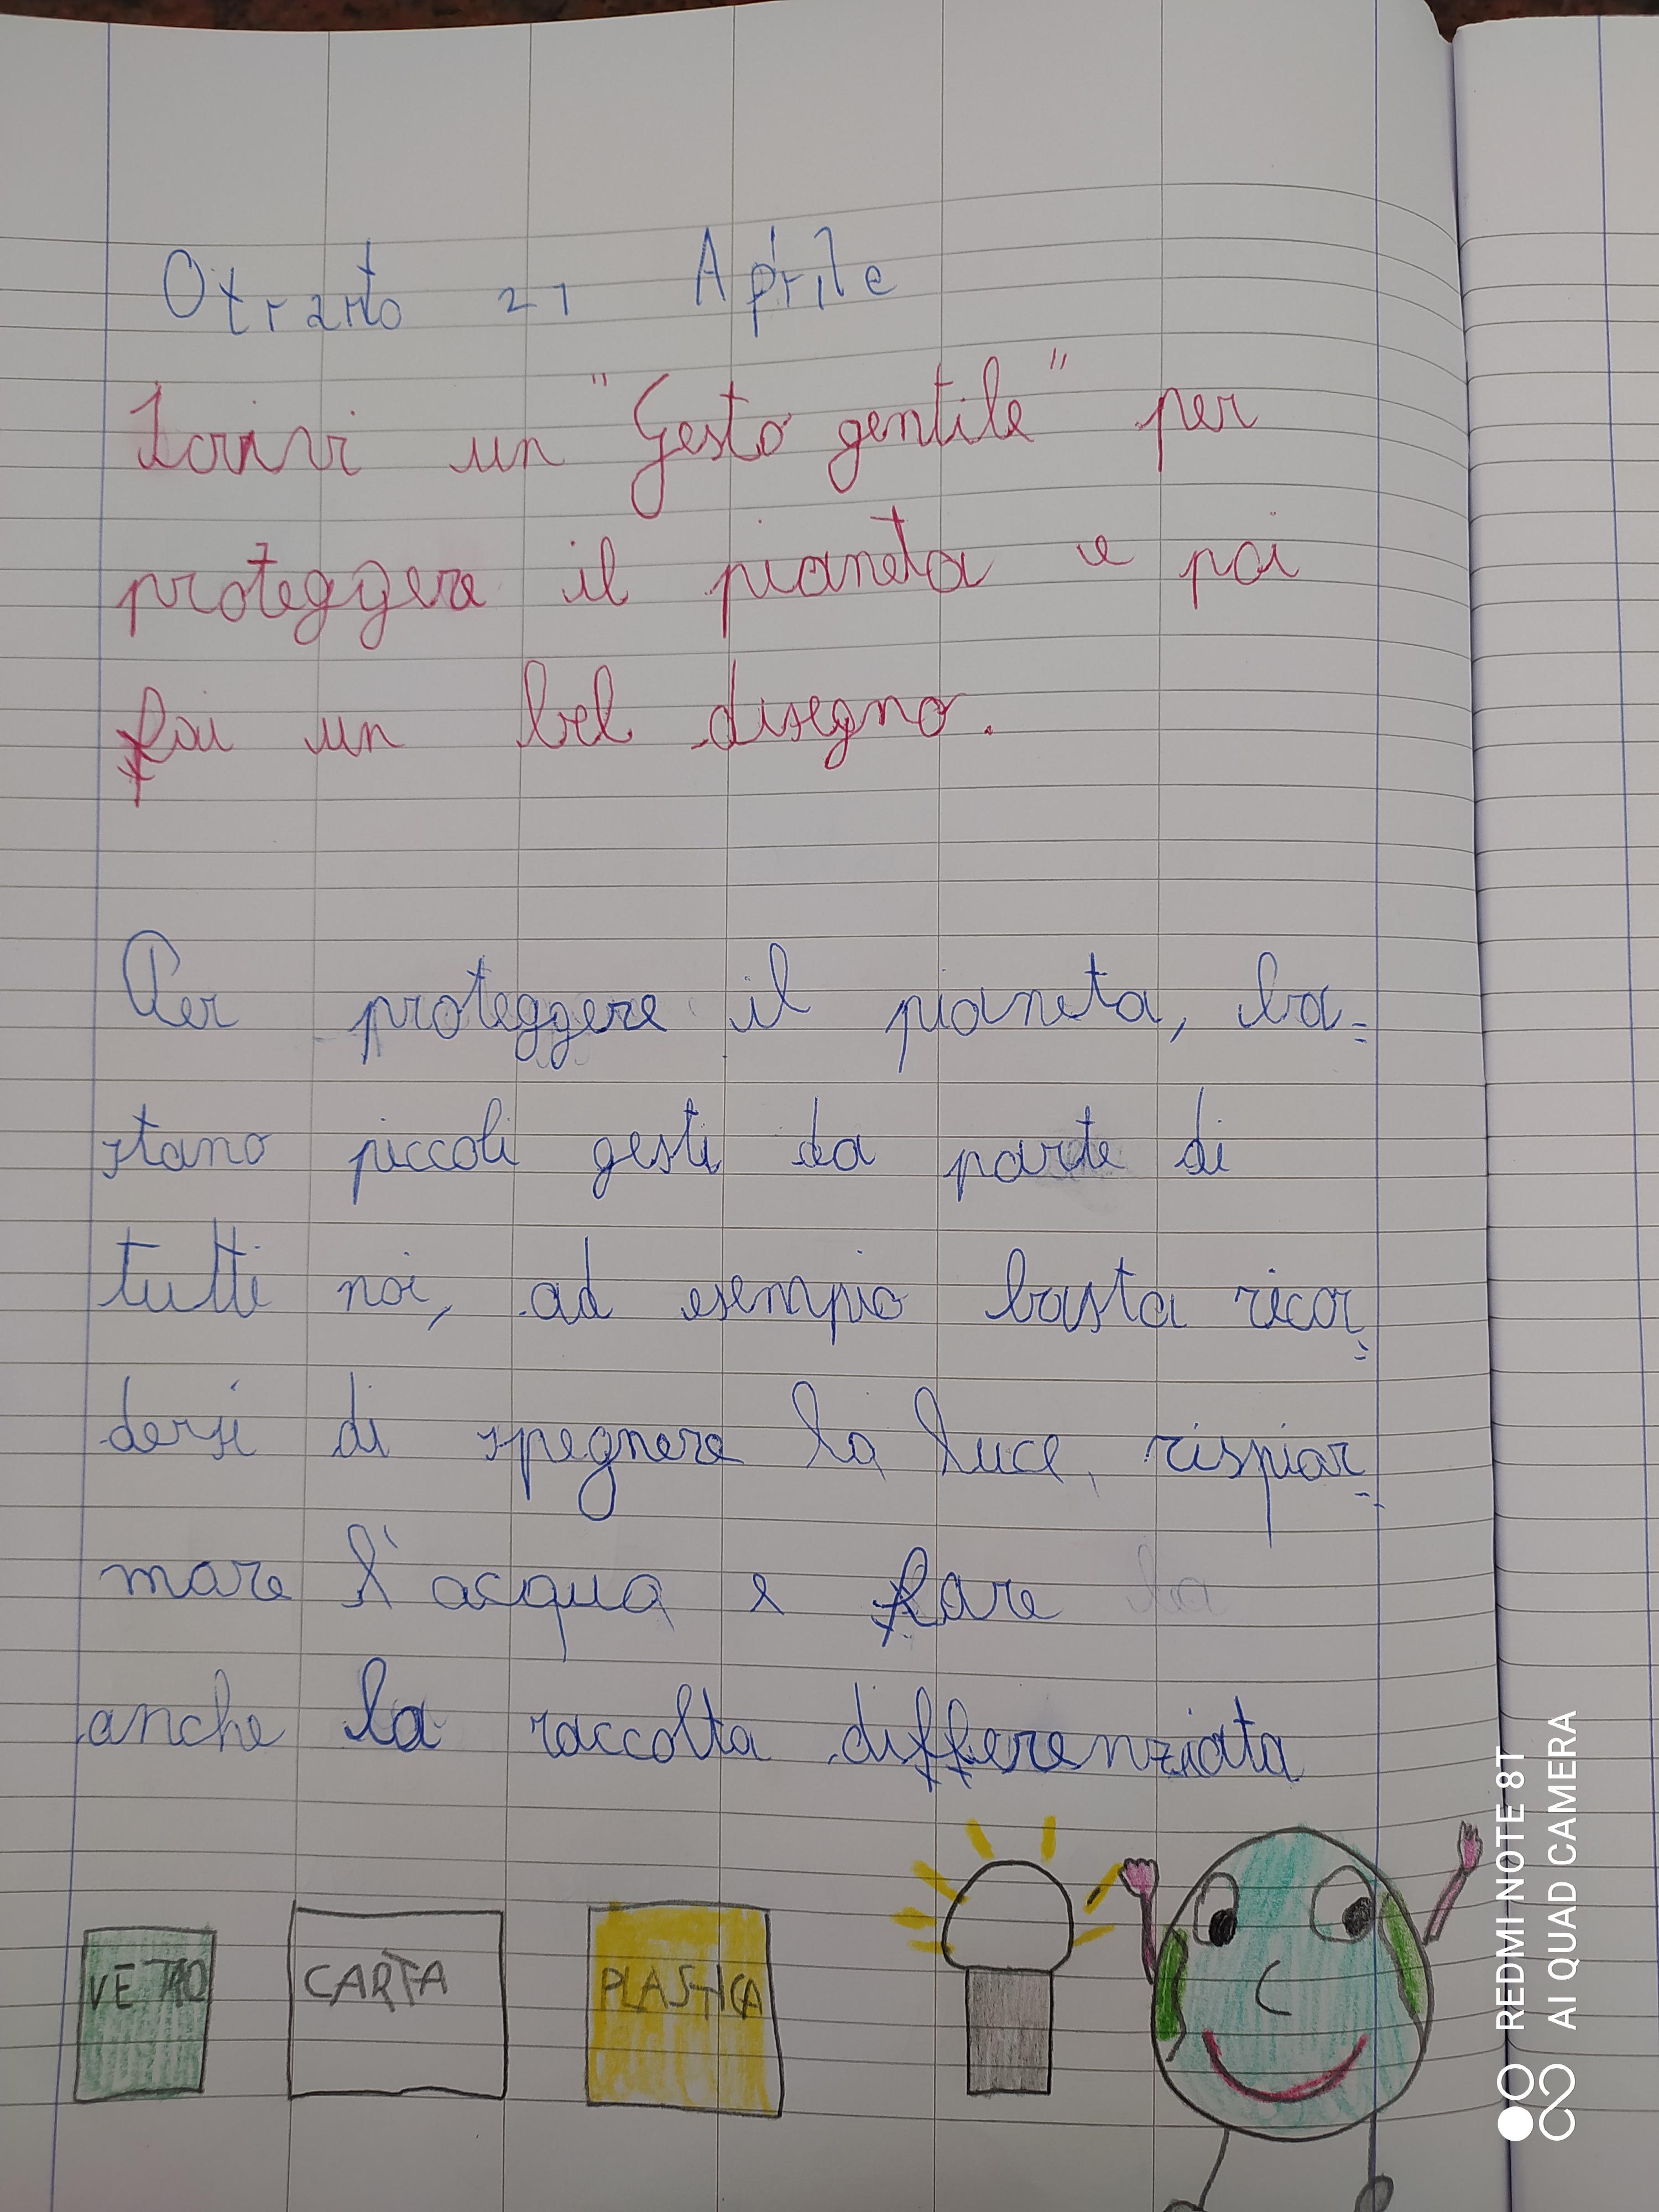 Otranto 21 Aprile
Scrivi un "Gesto gentile" per
proteggere il pianeta e poi
fai un bel disegno.
Per proteggere il pianeta, ba=
stano piccoli gesti da parte di
tutti noi, ad esempio basta ricor=
darsi di spegnere la luce, rispiar=
mare l'acqua e fare la
anche la raccolta differenziata
VETRO
CARTA
PLASTICA
REDMI NOTE 8T
AI QUAD CAMERA